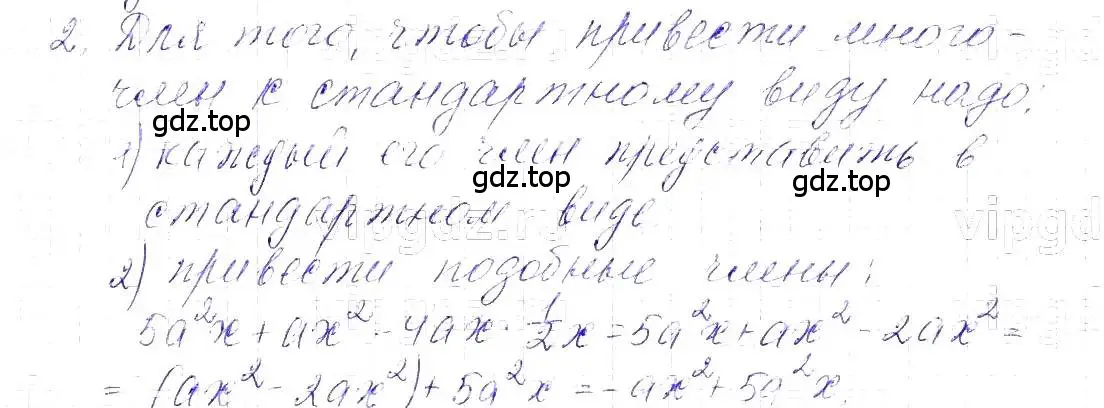 2. Для того, чтобы привести много-
член к стандартному виду надо:
gdz.top
1) каждый его член представить в
gdz.top
gdz.top
стандартном виде
vipgdz.ru
vipgd
2) привести подобные члены:
5a²x + ax² - 4ax · 1/2x = 5a²x + ax² - 2ax² =
= (ax² - 2ax²) + 5a²x = -ax² + 5a²x.